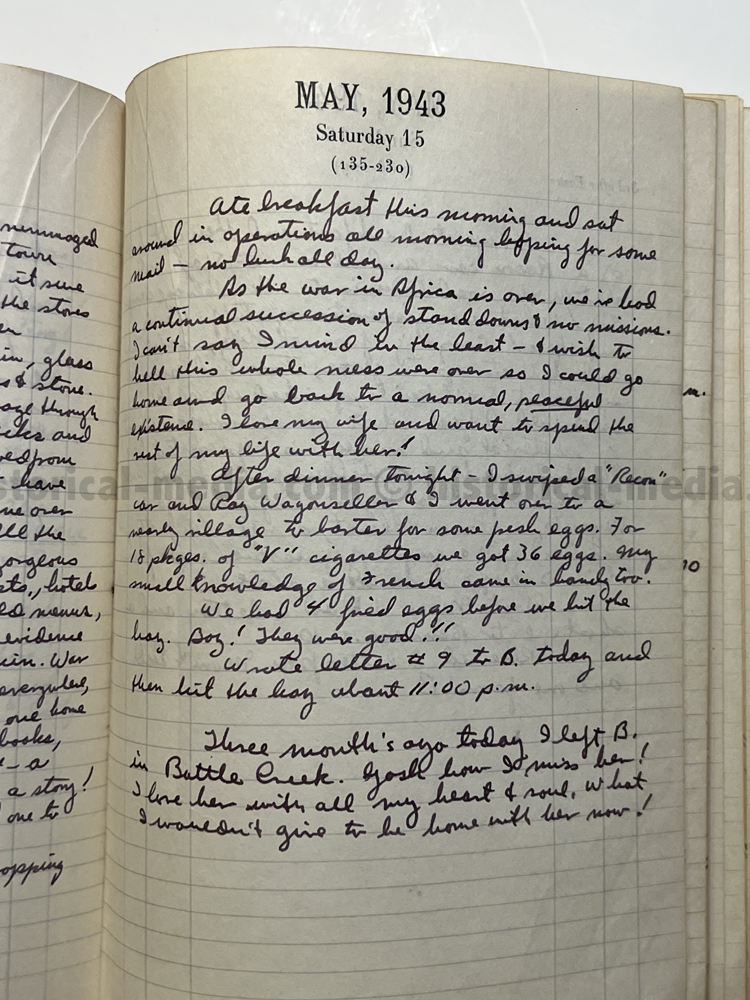 MAY, 1943
Saturday 15
(135-230)
Ate breakfast this morning and sat
around in operations all morning hoping for some
mail — no luck all day.
As the war in Africa is over, we've had
a continual succession of stand downs & no missions.
I can't say I mind in the least — & wish to
hell this whole mess were over so I could go
home and go back to a normal, peaceful
existence. I love my wife and want to spend the
rest of my life with her!
After dinner tonight — I swiped a "Recon"
car and Ray Wagonseller & I went over to a
nearly village to barter for some fresh eggs. For
18 pkges. of "V" cigarettes we got 36 eggs. My
small knowledge of French came in handy too.
We had 4 fried eggs before we hit the
hay. Boy! They were good!!!
Wrote letter # 9 to B. today and
then hit the hay about 11:00 p.m.
Three month's ago today I left B.
in Battle Creek. Gosh how I miss her!
I love her with all my heart & soul. What
I wouldn't give to be home with her now!
rummaged
town
it sure
the stores
in, glass
& stone.
through
and
have
over
all the
gorgeous
hotels
evidence
ruin. War
everywhere,
one home
books,
- a
a story!
one to
opping
m.
10